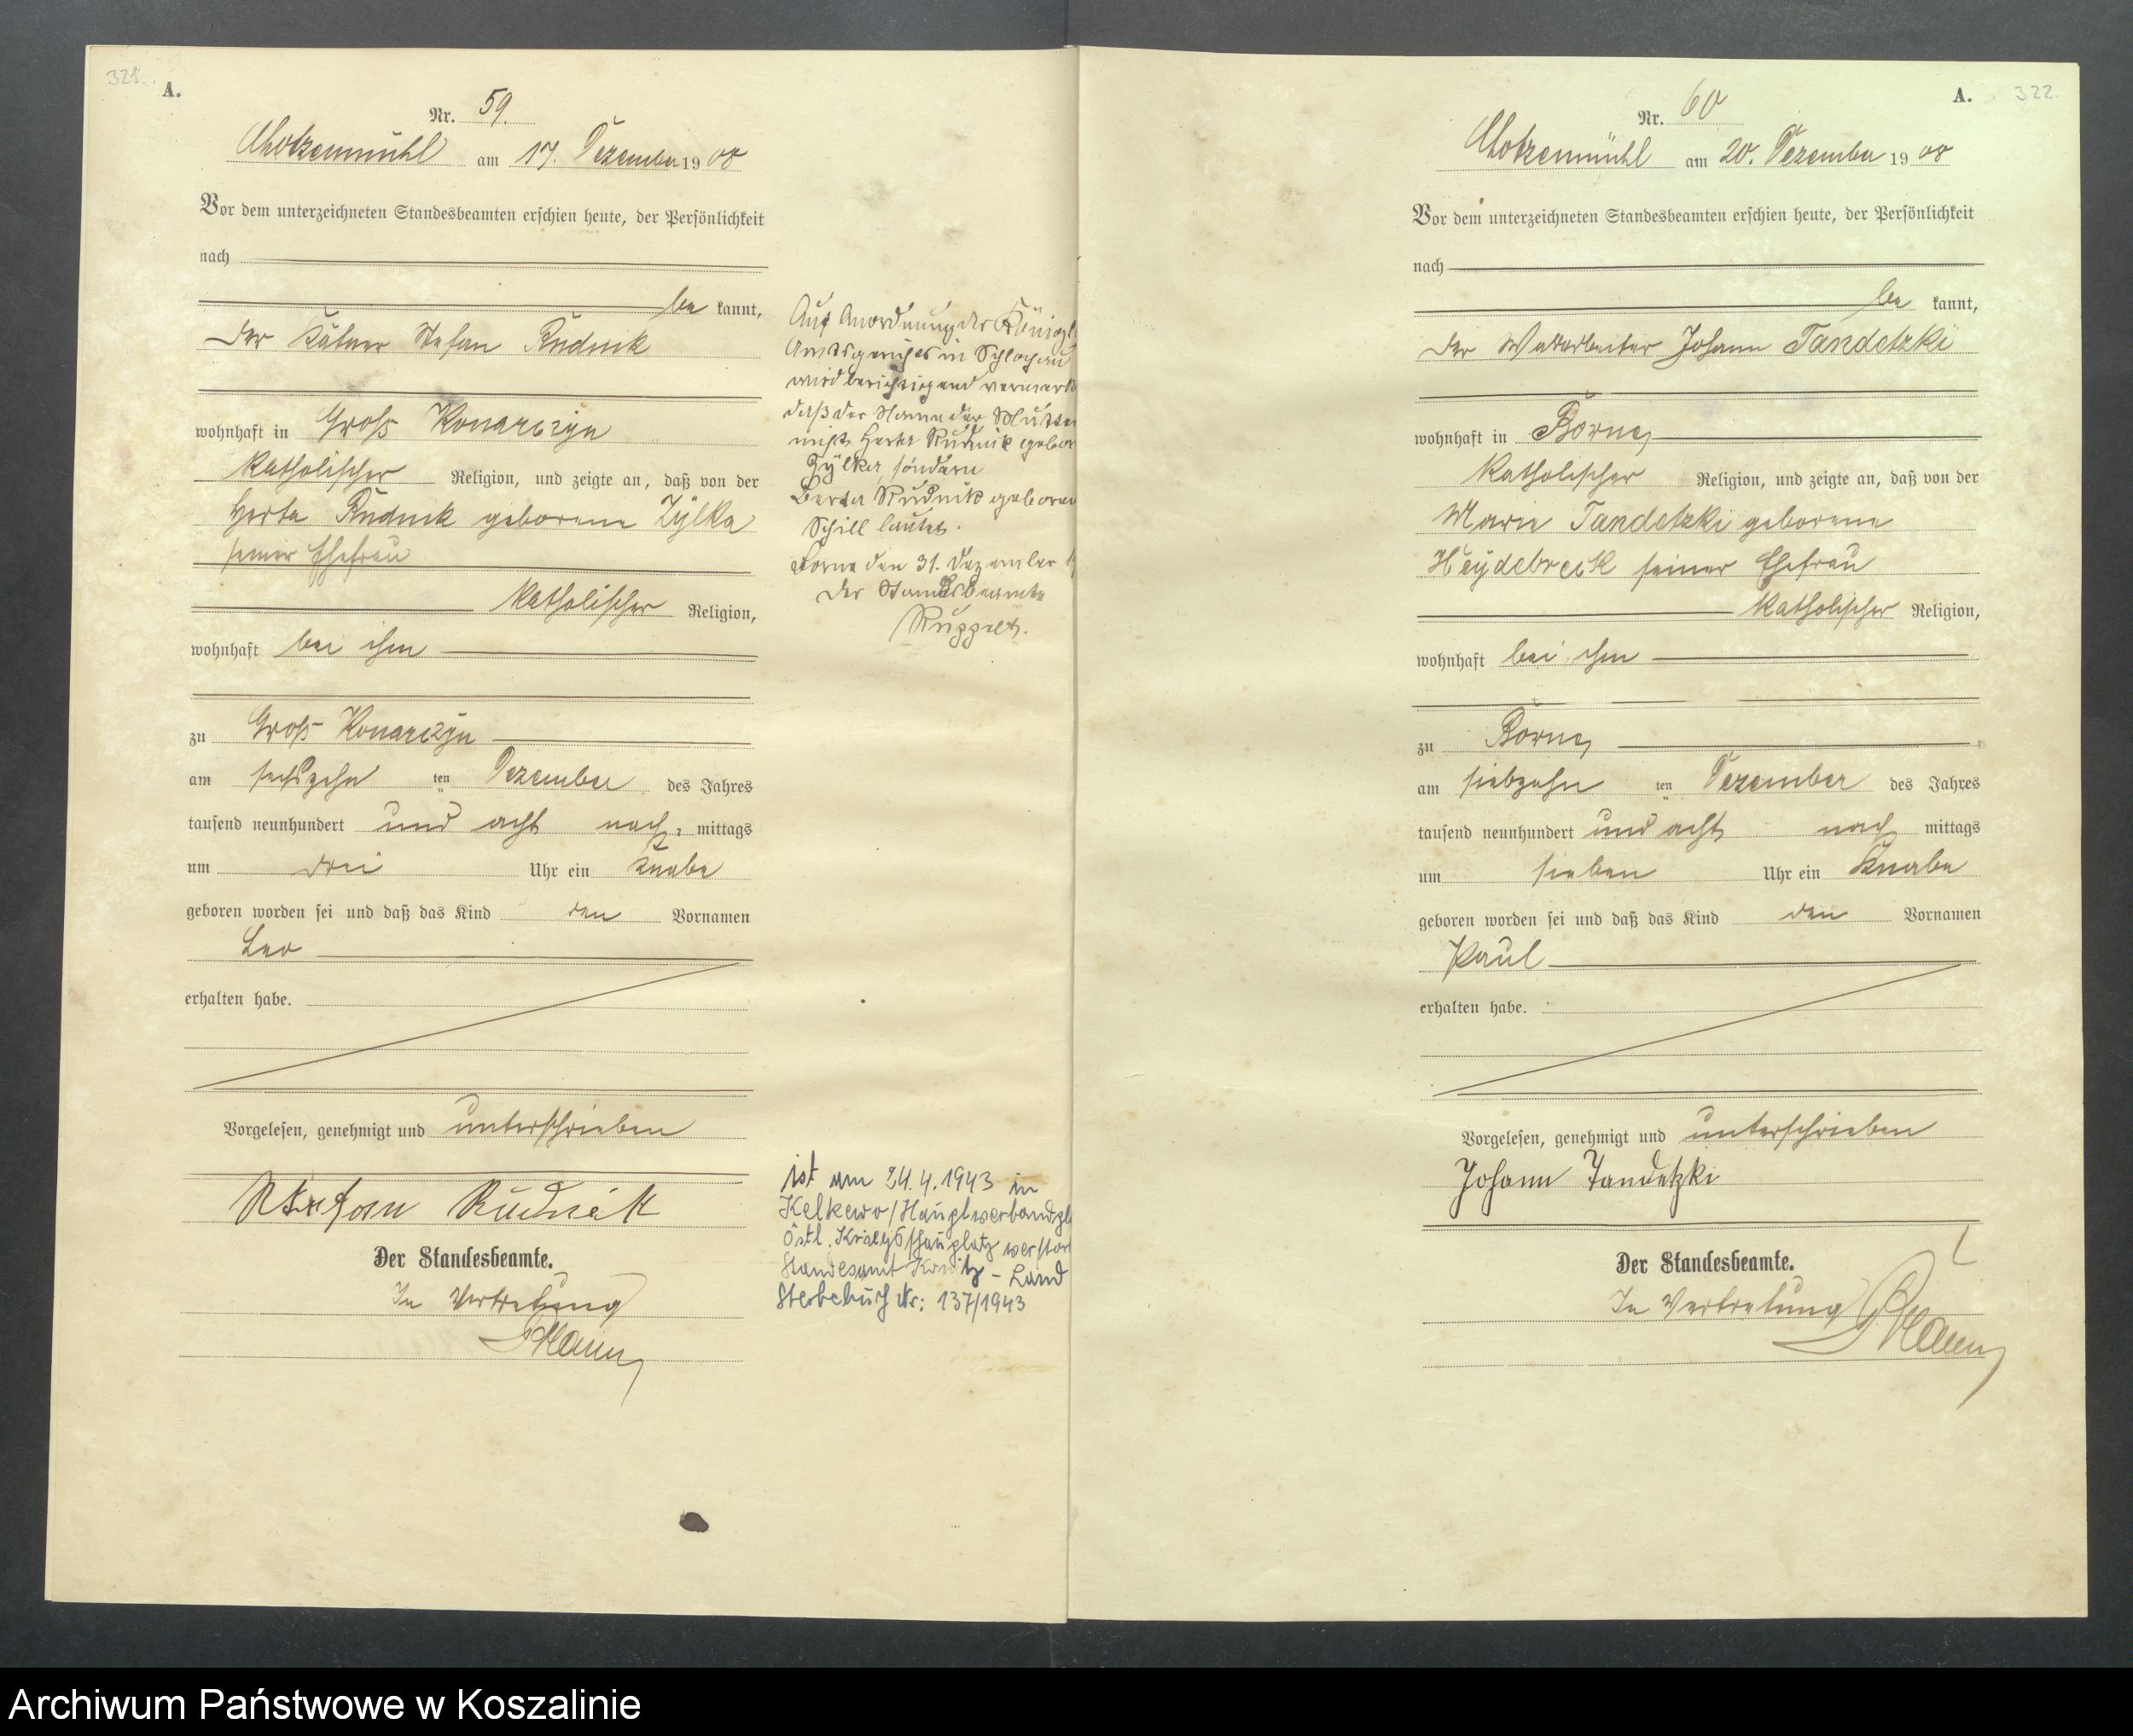 321.
A.
Nr. 59.
Chotzenmühl am 17. Dezember 1908
Vor dem unterzeichneten Standesbeamten erschien heute, der Persönlichkeit
nach
be kannt,
der Kätner Stefan Rudnik
wohnhaft in Groß Konarczyn
katholischer Religion, und zeigte an, daß von der
Herta Rudnik geborene Zÿlka
seiner Ehefrau
katholischer Religion,
wohnhaft bei ihm
zu Groß Konarczyn
am sechszehn ten Dezember des Jahres
tausend neunhundert und acht nach mittags
um drei Uhr ein Knabe
geboren worden sei und daß das Kind den Vornamen
Leo
erhalten habe.
Vorgelesen, genehmigt und unterschrieben
Stefan Rudnik
Der Standesbeamte.
In Vertretung
Auf Anordnung des Königl
Amtsgerichts in Schlochau
wird berichtigend vermerkt
daß der Name der Mutter
nicht Herta Rudnik gebor
Zÿlka, sondern
Berta Rudnik geboren
Schill lautet.
Borne den 31. Dezember 1
Der Standesbeamte
ist am 24.4.1943 in
Kelkewo/Hauptverbandpl
östl. Kriegsschauplatz verstor
Standesamt Konitz-Land
Sterbebuch Nr: 137/1943
A. 322.
Nr. 60
Chotzenmühl am 20. Dezember 1908
Vor dem unterzeichneten Standesbeamten erschien heute, der Persönlichkeit
nach
be kannt,
der Waldarbeiter Johann Tandetzki
wohnhaft in Borne
katholischer Religion, und zeigte an, daß von der
Marie Tandetzki geborene
Heydebreck seiner Ehefrau
katholischer Religion,
wohnhaft bei ihm
zu Borne
am siebzehn ten Dezember des Jahres
tausend neunhundert und acht nach mittags
um sieben Uhr ein Knabe
geboren worden sei und daß das Kind den Vornamen
Paul
erhalten habe.
Vorgelesen, genehmigt und unterschrieben
Johann Tandetzki
Der Standesbeamte.
In Vertretung
Archiwum Państwowe w Koszalinie